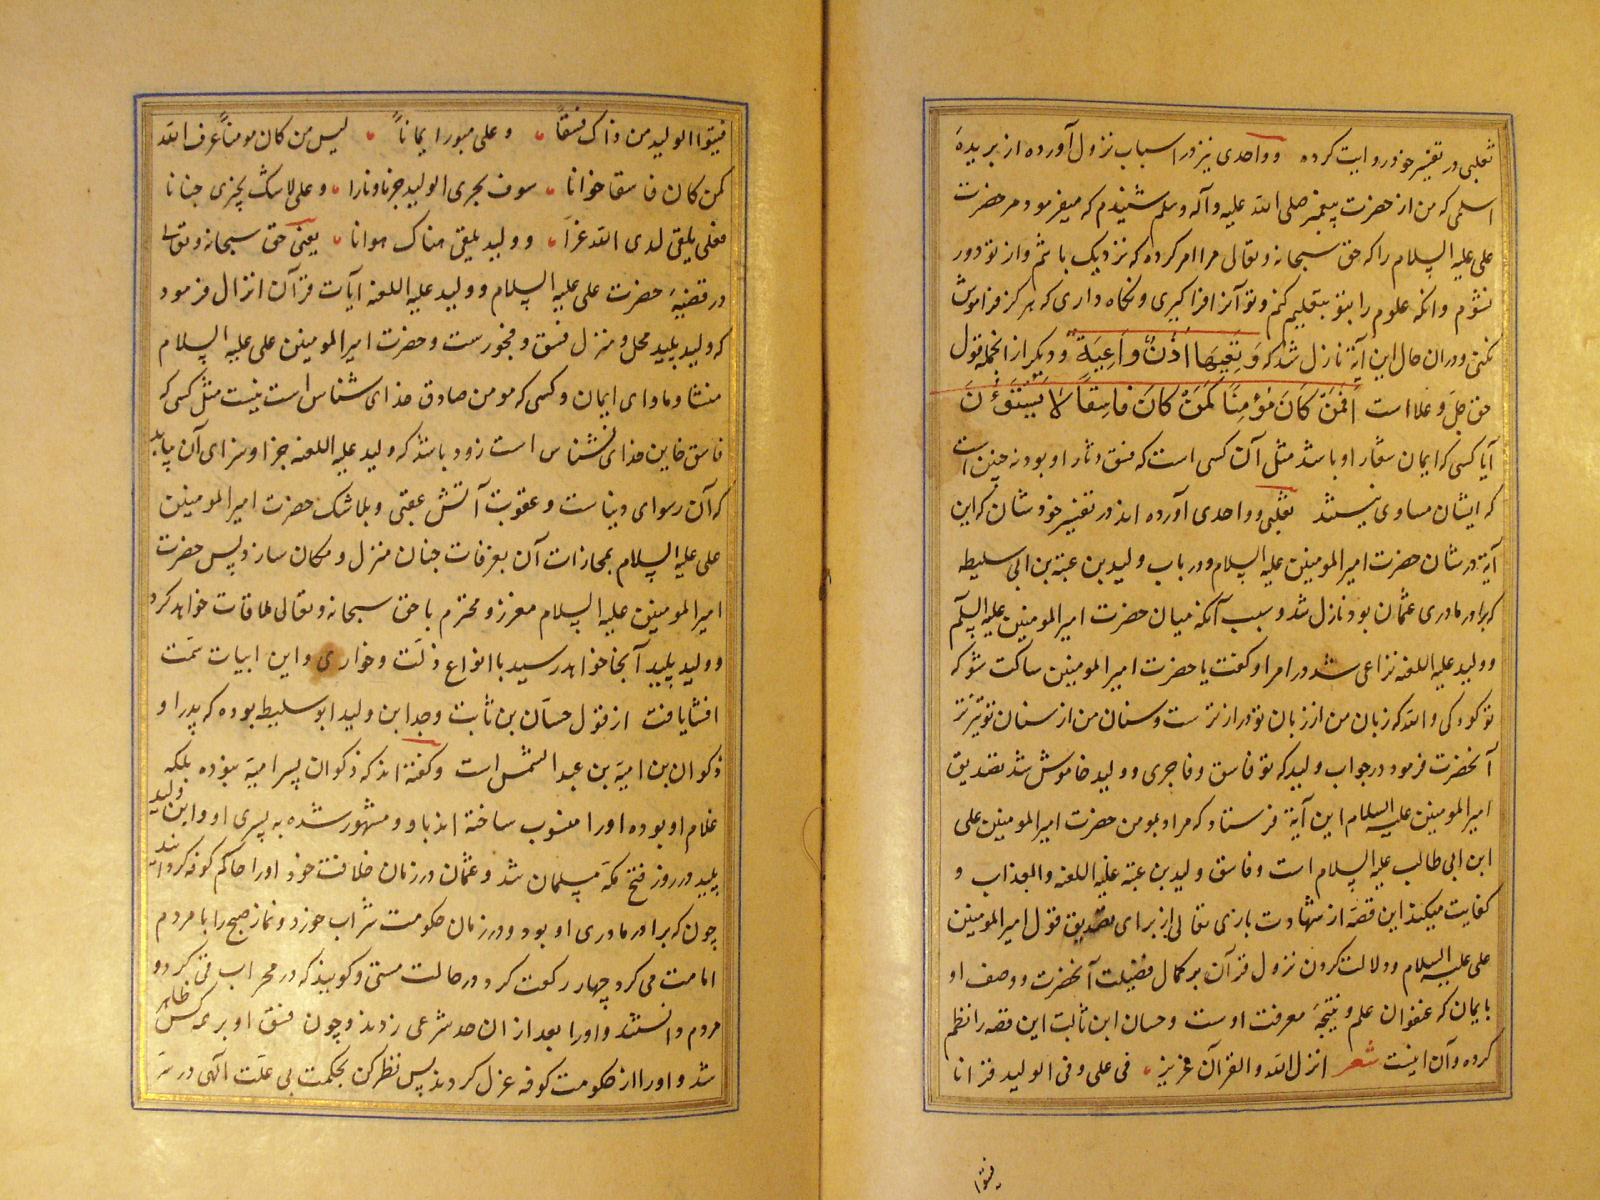 ثعلبی در تفسیر خود روایت کرده و واحدی نیز در اسباب نزول آورده از بریدهٔ
اسلمی که من از حضرت پیغمبر صلی الله علیه وآله وسلم شنیدم که میفرمود مر حضرت
علی علیه السلام را که حق سبحانه وتعالی مرا امر کرده که نزدیک باشم و از تو دور
نشوم وانکه علوم را بتو تعلیم کنم و تو آنرا فراگیری ونکاه داری که هرکز فراموش
نکنی ودران حال این آیة نازل شد که وَتَعِیَهَا اُذُنٌ وَاعِیَةٌ و دیکر از انجمله قول
حق جل وعلا است اَفَمَنْ کَانَ مُؤْمِنًا کَمَنْ کَانَ فَاسِقًا لَا یَسْتَوُنَ
آیا کسی که ایمان شعار او باشد مثل آن کسی است که فسق دثار او بود نه چنین است
که ایشان مساوی نیستند ثعلبی وواحدی آورده اند در تفسیر خودشان که این
آیة در شان حضرت امیرالمومنین علیه السلام ودر باب ولید بن عتبة بن ابی سلیطه
که برادر مادری عثمان بود نازل شد وسبب آنکه میان حضرت امیرالمومنین علیه السلم
وولید علیه اللعنه نزاعی شد در امر او کفت یا حضرت امیرالمومنین ساکت شو که
تو کودکی والله که زبان من از زبان تو درازتر ست وسنان من از سنان تو تیزتر
آنحضرت فرمود در جواب ولید که تو فاسق وفاجری وولید خاموش شد بتصدیق
امیرالمومنین علیه السلام این آیة فرستاد که مراد بمومن حضرت امیرالمومنین علی
ابن ابی طالب علیه السلام است وفاسق ولید بن عتبة علیه اللعنه والعذاب و
کفایت میکند این قصه از شهادت باری تعالی از برای تصدیق قول امیرالمومنین
علی علیه السلام ودلالت کردن نزول قرآن بر کمال فضیلت آنحضرت ووصف او
بایمان که عنوان علم ونتیجهٔ معرفت اوست وحسان ابن ثابت این قصه را نظم
کرده وآن اینست شعر انزل الله والقرآن عزیز فی علی وفی الولید قرانا
فتبوا
فتبوا الولید من ذاک فسقاً وعلی مبورا یماناً لیس من کان مومناً عرف الله
کمن کان فاسقا خوانا سوف یجزی الولید خزیا ونارا وعلی لاشک یجزی جنانا
فعلی یلقی لدی الله عزاً وولید یلقی هناک هوانا یعنی حق سبحانه وتعالی
در قضیهٔ حضرت علی علیه السلام وولید علیه اللعنه آیات قرآن انزال فرمود
که ولید پلید محل ومنزل فسق وفجورست وحضرت امیرالمومنین علی علیه السلام
منشا وماوای ایمان وکسی که مومن صادق خدای شناس است نیست مثل کسی که
فاسق خاین خدای نشناس است زود باشد که ولید علیه اللعنه جزا وسزای آن یابد
که آن رسوای دنیاست وعقوبت آتش عقبی وبلاشک حضرت امیرالمومنین
علی علیه السلام بمجازات آن بغرفات جنان منزل ومکان سازد پس حضرت
امیرالمومنین علیه السلام معزز ومحترم با حق سبحانه وتعالی ملاقات خواهد کرد
وولید پلید آنجا خواهد رسید با انواع ذلت وخواری واین ابیات سمت
افشا یافت از قول حسان بن ثابت وجد ابن ولید ابو سلیط بوده که پدر او
ذکوان بن امیة بن عبد الشمس است وکفته اند که ذکوان پسر امیة نبوده بلکه
غلام او بوده اورا منسوب ساخته اند باو ومشهور شده به پسری او واین ولید
پلید در روز فتح مکه مسلمان شد وعثمان در زمان خلافت خود اورا حاکم کوفه کرد
چون که برادر مادری او بود ودر زمان حکومت شراب خورد ونماز صبح را با مردم
امامت می کرد چهار رکعت کرد در حالت مستی وکویند که در محراب قی کرد و
مردم دانستند واورا بعد از ان حد شرعی زدند وچون فسق او بر همه کس ظاهر
شد واورا از حکومت کوفه عزل کردند پس نظر کن بحکمت بی علت آلهی در سرّ